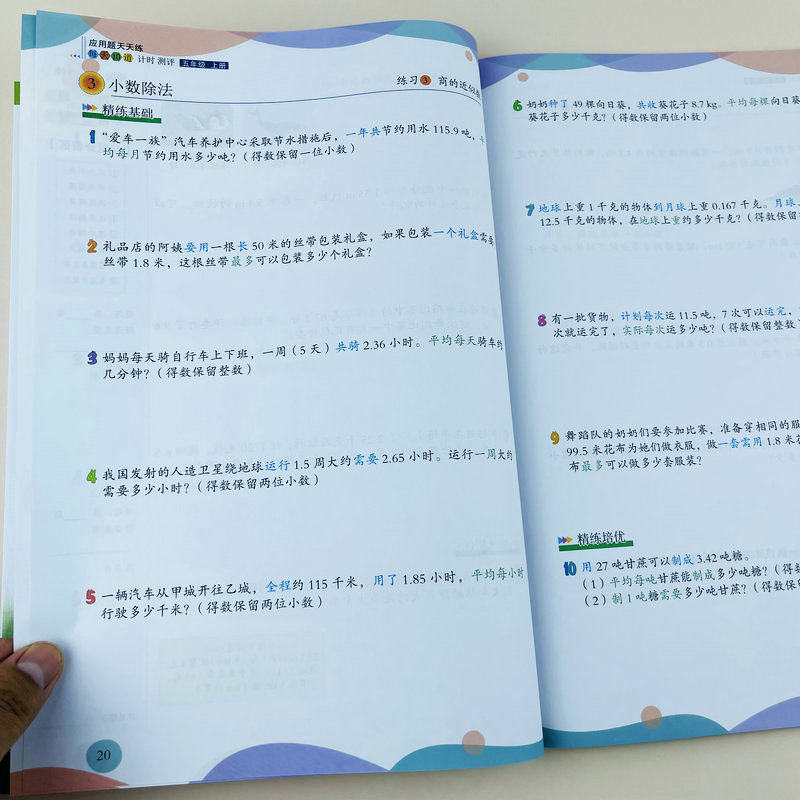 应用题天天练
每天10道 计时 测评 五年级 上册
3 小数除法
练习3 商的近似
精练基础
1 “爱车一族”汽车养护中心采取节水措施后，一年共节约用水 115.9 吨，
均每月节约用水多少吨？（得数保留一位小数）
2 礼品店的阿姨要用一根长 50 米的丝带包装礼盒，如果包装一个礼盒需要
丝带 1.8 米，这根丝带最多可以包装多少个礼盒？
3 妈妈每天骑自行车上下班，一周（5 天）共骑 2.36 小时。平均每天骑车约
几分钟？（得数保留整数）
4 我国发射的人造卫星绕地球运行 1.5 周大约需要 2.65 小时。运行一周大约
需要多少小时？（得数保留两位小数）
5 一辆汽车从甲城开往乙城，全程约 115 千米，用了 1.85 小时，平均每小时
行驶多少千米？（得数保留两位小数）
20
6 奶奶种了 49 棵向日葵，共收葵花子 8.7 kg。平均每棵向日
葵花子多少千克？（得数保留两位小数）
7 地球上重 1 千克的物体到月球上重 0.167 千克。月球
12.5 千克的物体，在地球上重约多少千克？（得数保留
8 有一批货物，计划每次运 11.5 吨，7 次可以运完，
次就运完了，实际每次运多少吨？（得数保留整数
9 舞蹈队的奶奶们要参加比赛，准备穿相同的服
99.5 米花布为她们做衣服，做一套需用 1.8 米
布最多可以做多少套服装？
精练培优
10 用 27 吨甘蔗可以制成 3.42 吨糖。
（1）平均每吨甘蔗能制成多少吨糖？（得
（2）制 1 吨糖需要多少吨甘蔗？（得数保